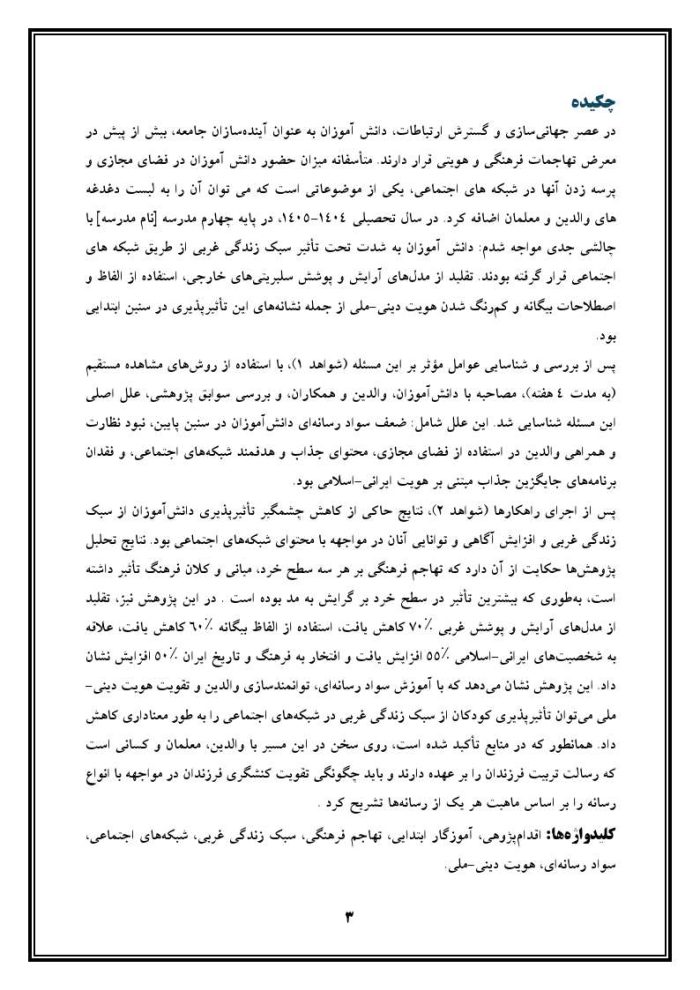 چکیده
در عصر جهانی‌سازی و گسترش ارتباطات، دانش آموزان به عنوان آینده‌سازان جامعه، بیش از پیش در
معرض تهاجمات فرهنگی و هویتی قرار دارند. متأسفانه میزان حضور دانش آموزان در فضای مجازی و
پرسه زدن آنها در شبکه های اجتماعی، یکی از موضوعاتی است که می توان آن را به لیست دغدغه
های والدین و معلمان اضافه کرد. در سال تحصیلی ۱۴۰۴-۱۴۰۵، در پایه چهارم مدرسه [نام مدرسه] با
چالشی جدی مواجه شدم: دانش آموزان به شدت تحت تأثیر سبک زندگی غربی از طریق شبکه های
اجتماعی قرار گرفته بودند. تقلید از مدل‌های آرایش و پوشش سلبریتی‌های خارجی، استفاده از الفاظ و
اصطلاحات بیگانه و کم‌رنگ شدن هویت دینی-ملی از جمله نشانه‌های این تأثیرپذیری در سنین ابتدایی
بود.
پس از بررسی و شناسایی عوامل مؤثر بر این مسئله (شواهد ۱)، با استفاده از روش‌های مشاهده مستقیم
(به مدت ۴ هفته)، مصاحبه با دانش‌آموزان، والدین و همکاران، و بررسی سوابق پژوهشی، علل اصلی
این مسئله شناسایی شد. این علل شامل: ضعف سواد رسانه‌ای دانش‌آموزان در سنین پایین، نبود نظارت
و همراهی والدین در استفاده از فضای مجازی، محتوای جذاب و هدفمند شبکه‌های اجتماعی، و فقدان
برنامه‌های جایگزین جذاب مبتنی بر هویت ایرانی-اسلامی بود.
پس از اجرای راهکارها (شواهد ۲)، نتایج حاکی از کاهش چشمگیر تأثیرپذیری دانش‌آموزان از سبک
زندگی غربی و افزایش آگاهی و توانایی آنان در مواجهه با محتوای شبکه‌های اجتماعی بود. نتایج تحلیل
پژوهش‌ها حکایت از آن دارد که تهاجم فرهنگی بر هر سه سطح خرد، میانی و کلان فرهنگ تأثیر داشته
است، به‌طوری که بیشترین تأثیر در سطح خرد بر گرایش به مد بوده است . در این پژوهش نیز، تقلید
از مدل‌های آرایش و پوشش غربی ۷۰٪ کاهش یافت، استفاده از الفاظ بیگانه ۶۰٪ کاهش یافت، علاقه
به شخصیت‌های ایرانی-اسلامی ۵۵٪ افزایش یافت و افتخار به فرهنگ و تاریخ ایران ۵۰٪ افزایش نشان
داد. این پژوهش نشان می‌دهد که با آموزش سواد رسانه‌ای، توانمندسازی والدین و تقویت هویت دینی-
ملی می‌توان تأثیرپذیری کودکان از سبک زندگی غربی در شبکه‌های اجتماعی را به طور معناداری کاهش
داد. همانطور که در منابع تأکید شده است، روی سخن در این مسیر با والدین، معلمان و کسانی است
که رسالت تربیت فرزندان را بر عهده دارند و باید چگونگی تقویت کنشگری فرزندان در مواجهه با انواع
رسانه را بر اساس ماهیت هر یک از رسانه‌ها تشریح کرد .
کلیدواژه‌ها: اقدام‌پژوهی، آموزگار ابتدایی، تهاجم فرهنگی، سبک زندگی غربی، شبکه‌های اجتماعی،
سواد رسانه‌ای، هویت دینی-ملی.
۳